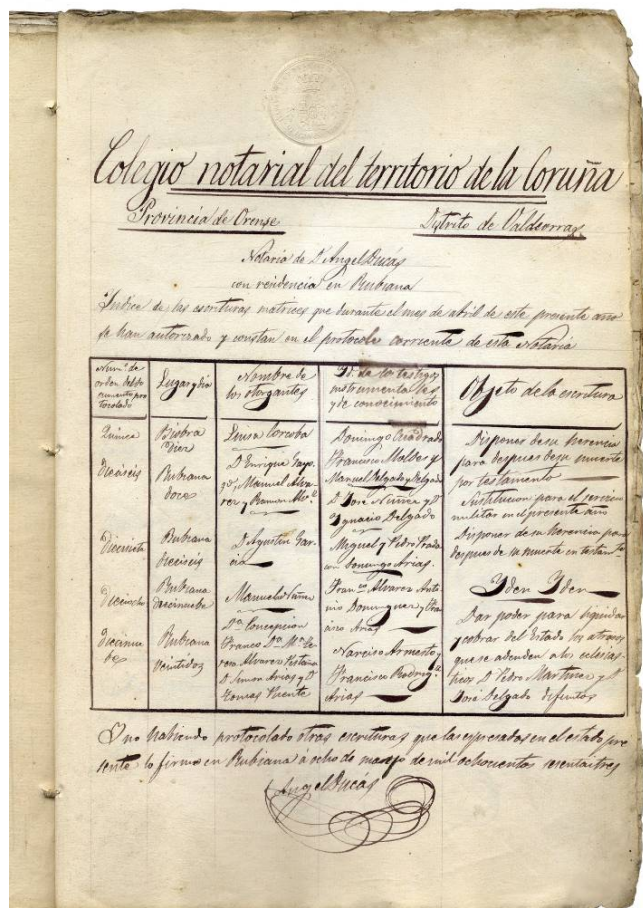 Colegio notarial del territorio de la Coruña
Provincia de Orense
Distrito de Valdeorras
Notaria de D. Angel Ducás
con residencia en Rubiana
Indice de las escrituras matrices que durante el mes de abril de este presente año
se han autorizado y constan en el protocolo corriente de esta Notaria
Num.o de
orden del do
cumento pro
tocolado
Lugar y dia
Nombre de
los otorgantes
de los testigos
instrumentales
y de conocimiento
Objeto de la escritura
Quince
Biobra
Diez
Luisa Corcoba
Domingo Cuadrado
Francisco Malbes y
Manuel Delgado y Delgado
Dispones de su herencia
para despues de su muerte
por testamento
Dieciseis
Rubiana
doce
D. Enrique Gayo
Manuel Alva
rez y Ramon
D. José Nuñez y D.
Ygnacio Delgado
Sustitucion para el servicio
militar en el presente año
Diecisiete
Rubiana
dieciseis
D. Agustin Gar
cia
Miguel y Pedro Prada
Domingo Arias
Disponer de su herencia para
despues de su muerte en testamto
Dieciocho
Rubiana
diecinuebe
Manuela Nuñez
Fran.co Alvarez Anto
nio Dominguez y Fran
cisco Arias
Yden Yden
Diecinue
be
Rubiana
veintidos
D.a Concepcion
Franco D.a M.a Te
resa Alvarez
D. Simon Arias y D.
Tomas Puente
Narciso Armesto y
Francisco Rodrig.z
Arias
Dar poder para liquidar
y cobrar del Estado los atrasos
que se adeuden a los eclesias
ticos D. Pedro Martinez y D.
José Delgado difuntos
Y no habiendo protocolado otras escrituras que las espresadas en el estado pre
sente lo firmo en Rubiana a ocho de mayo de mil ochocientos sesenta y tres
Angel Ducás